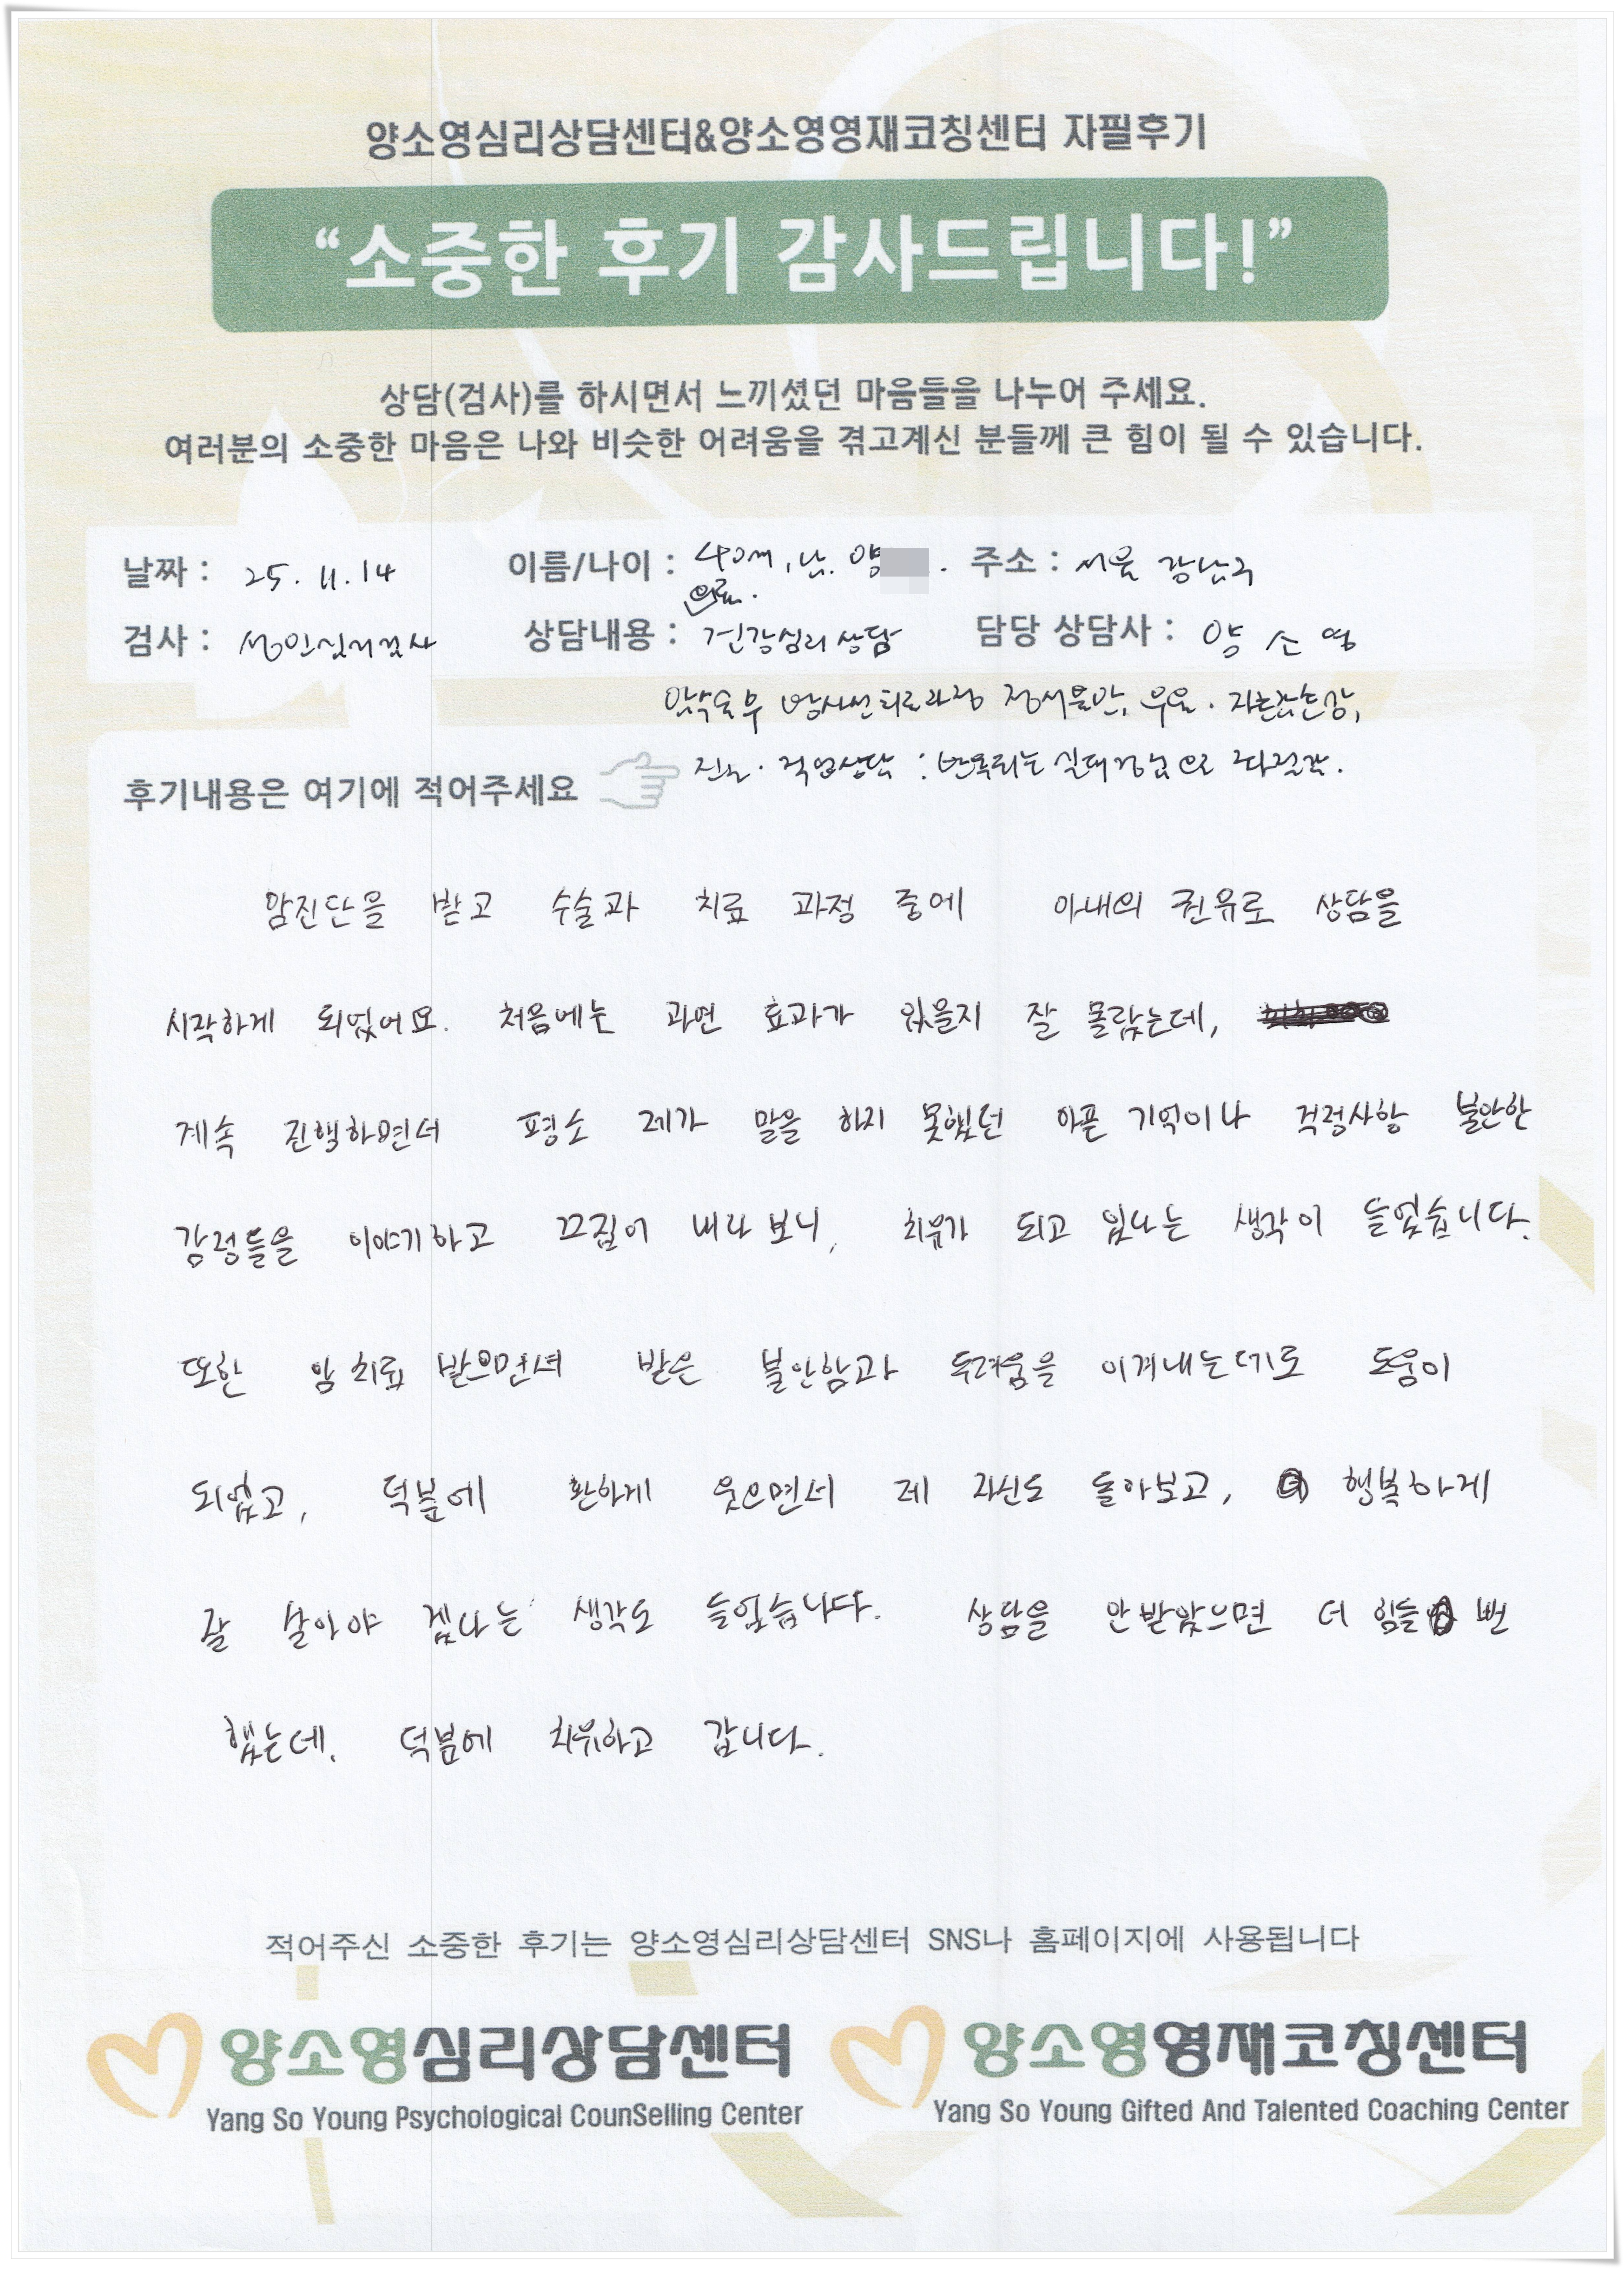 양소영심리상담센터&양소영영재코칭센터 자필후기
“소중한 후기 감사드립니다!”
상담(검사)를 하시면서 느끼셨던 마음들을 나누어 주세요.
여러분의 소중한 마음은 나와 비슷한 어려움을 겪고계신 분들께 큰 힘이 될 수 있습니다.
날짜 : 25. 11. 14 이름/나이 : 40세, 남. 양 주소 : 서울 강남구
의료.
검사 : 성인심리검사 상담내용 : 건강심리상담 담당 상담사 : 양소영
암수술후 방사선치료과정 정서불안, 우울. 자존감손상,
진로. 직업상담 : 반복되는 실패경험으로 좌절감.
후기내용은 여기에 적어주세요
암진단을 받고 수술과 치료 과정 중에 아내의 권유로 상담을
시작하게 되었어요. 처음에는 과연 효과가 있을지 잘 몰랐는데,
계속 진행하면서 평소 제가 말을 하지 못했던 아픈 기억이나 걱정사항 불안한
감정들을 이야기하고 끄집어 내다 보니, 치유가 되고 있다는 생각이 들었습니다.
또한 암 치료 받으면서 받은 불안함과 두려움을 이겨내는데도 도움이
되었고, 덕분에 환하게 웃으면서 제 자신도 돌아보고, 행복하게
잘 살아야 겠다는 생각도 들었습니다. 상담을 안받았으면 더 힘들 뻔
했는데, 덕분에 치유하고 갑니다.
적어주신 소중한 후기는 양소영심리상담센터 SNS나 홈페이지에 사용됩니다
양소영심리상담센터 양소영영재코칭센터
Yang So Young Psychological CounSelling Center Yang So Young Gifted And Talented Coaching Center